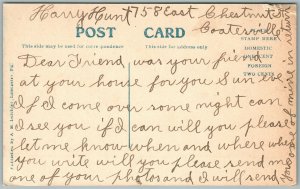 Harry Hunt 758 East Chestnut St
Coatesville
POST CARD
This side may be used for correspondence
This side for address only
STAMP HERE
DOMESTIC
ONE CENT
FOREIGN
TWO CENTS
Dear Friend, was your friend
at your house for you S un eve
If I come over some night can
I see you if I can will you please
let me know when and where when
you write will you please send me
one of your photos and I will send
you one of mine in return